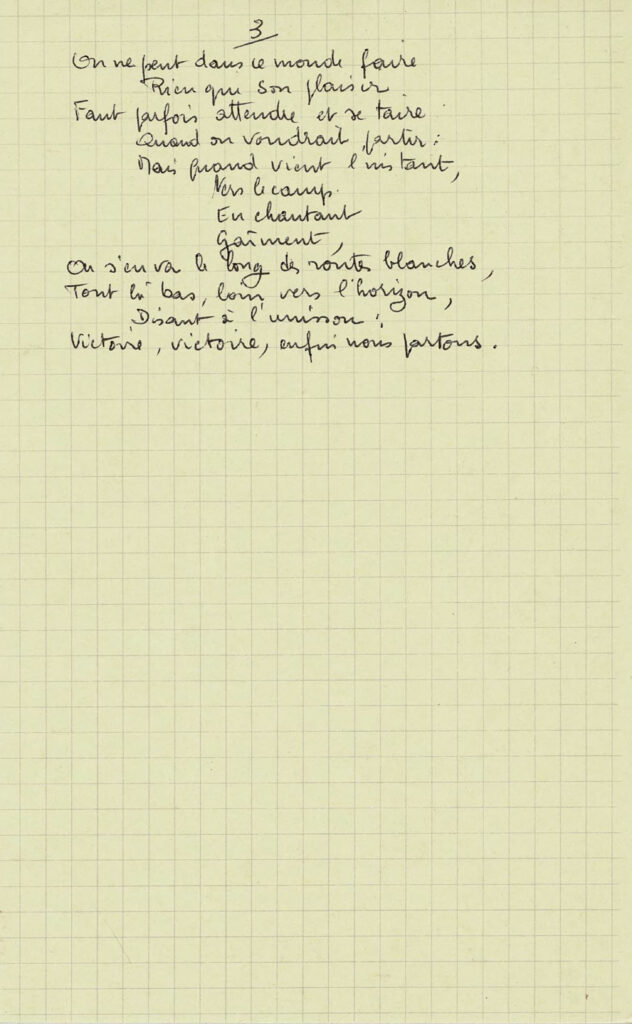 3
On ne peut dans ce monde faire
Rien que son plaisir.
Faut parfois attendre et se taire
Quand on voudrait partir :
Mais quand vient l'instant,
Vers le camp.
En chantant
Gaîment,
On s'en va le long des routes blanches,
Tout là bas, loin vers l'horizon,
Disant à l'unisson :
Victoire, victoire, enfin nous partons.